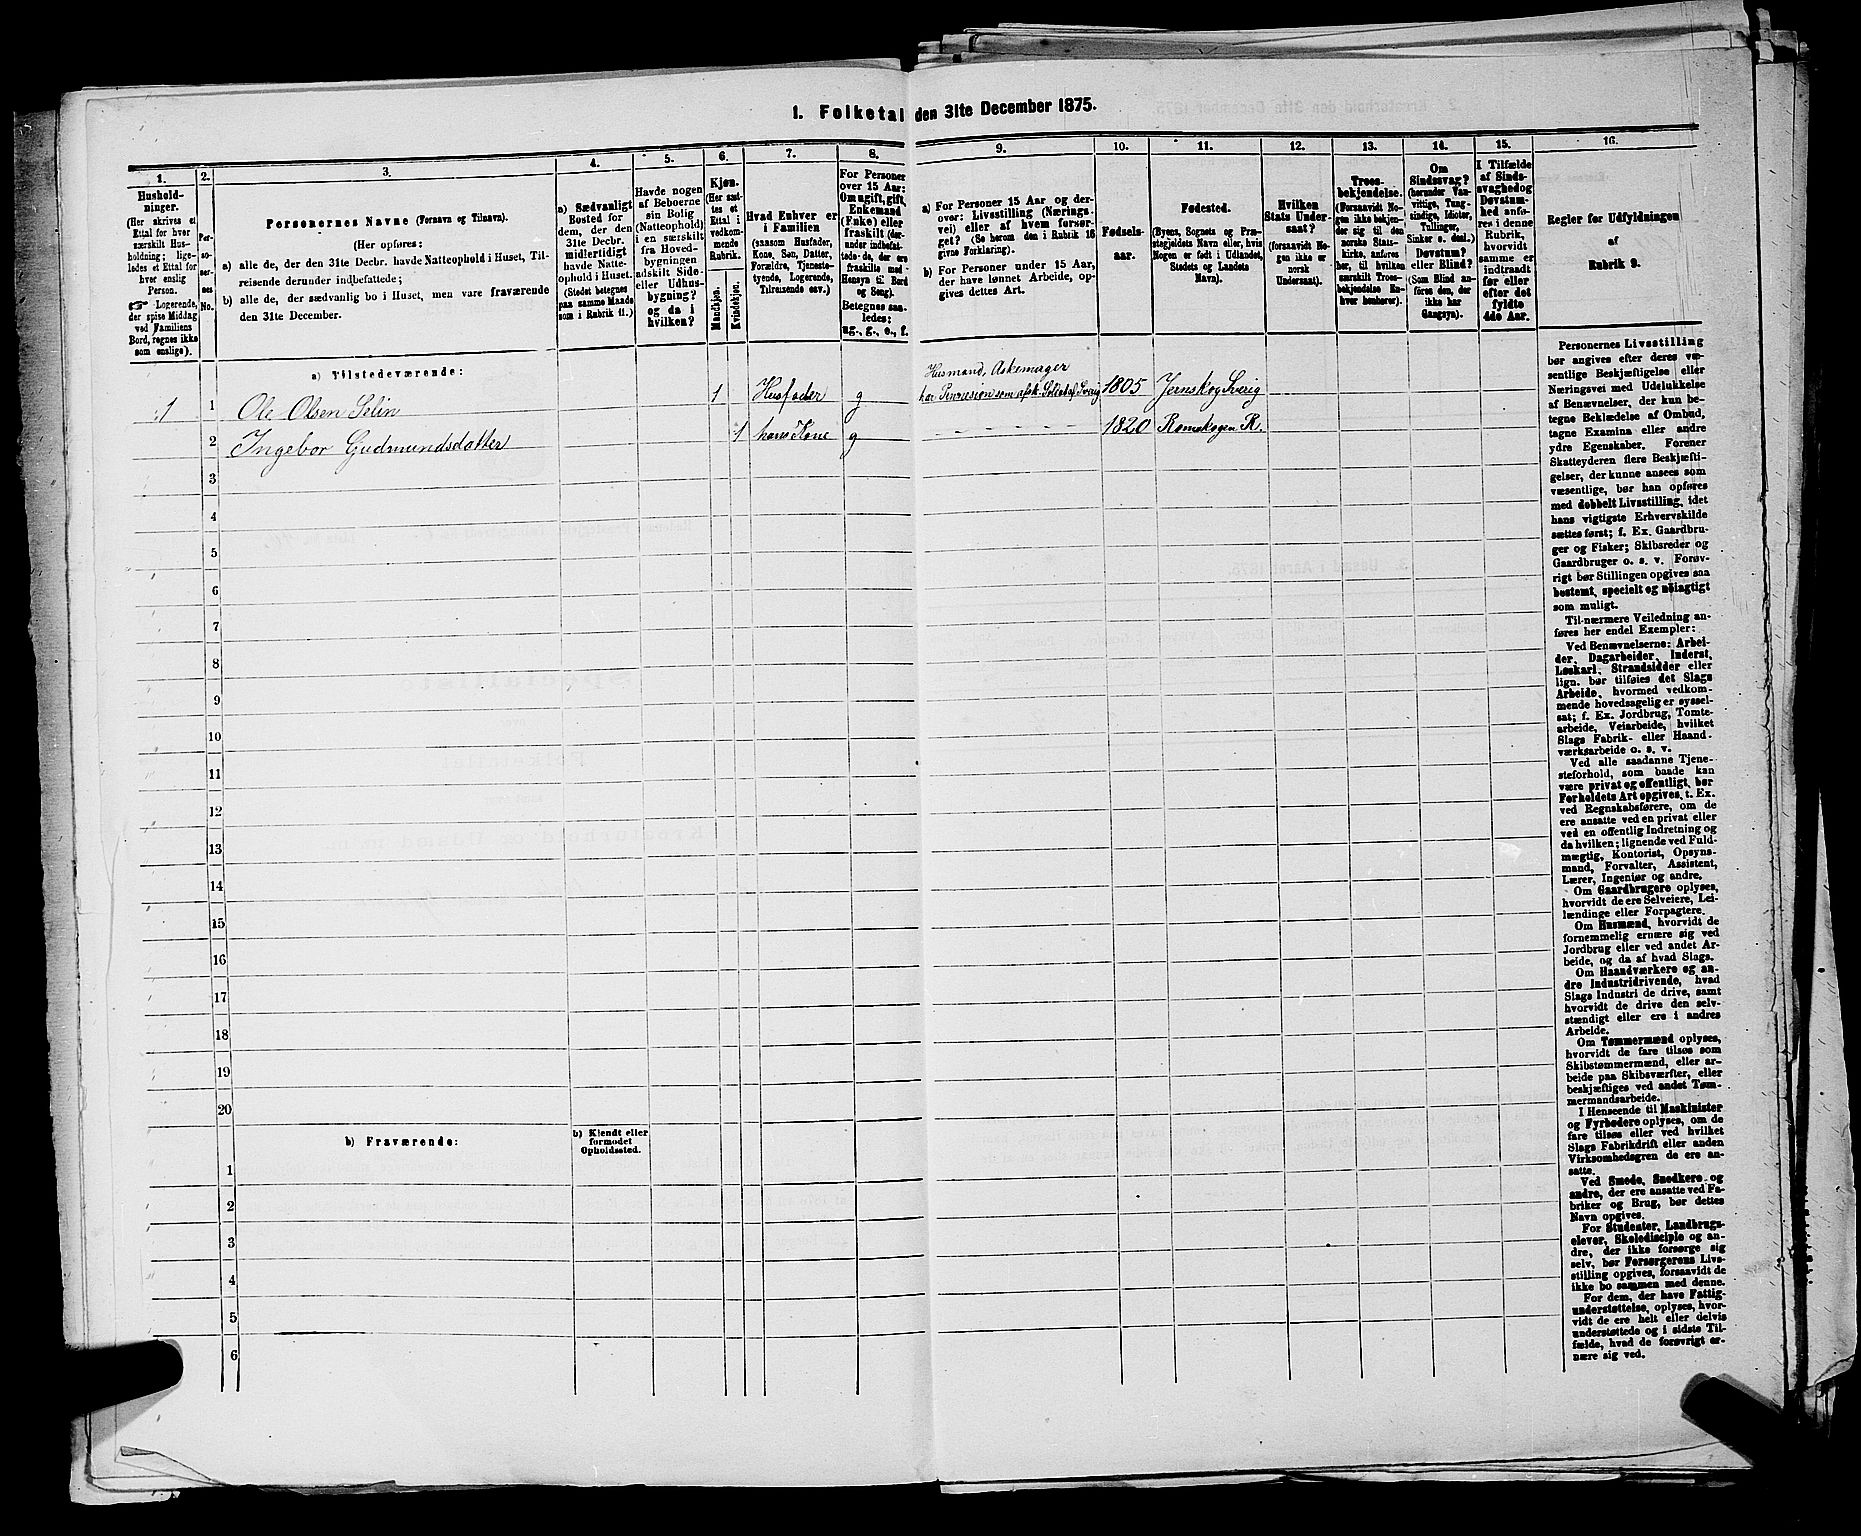 1. Folketal den 31te December 1875.
1.
Hushold-
ninger.
(Her skrives et
Ettal for hver
særskilt Hus-
holdning; lige-
ledes et Ettal for
hver enslig
Person.
☞ Logerende,
der spise Middag
ved Familiens
Bord, regnes ikke
som enslige).
2.
Per-
so-
ner-
nes
No.
3.
Personernes Navne (Fornavn og Tilnavn).
(Her opføres:
a) alle de, der den 31te Decbr. havde Natteophold i Huset, Til-
reisende derunder indbefattede;
b) alle de, der sædvanlig bo i Huset, men vare fraværende
den 31te December.
4.
a) Sædvanligt
Bosted for
dem, der den
31te Decbr.
midlertidigt
havde Natte-
ophold i Huset.
(Stedet betegnes
paa samme Maade
som i Rubrik 11.)
5.
Havde nogen
af Beboerne
sin Bolig
(Natteophold)
i en særskilt
fra Hoved-
bygningen
adskilt Side-
eller Udhus-
bygning?
og da i
hvilken?
6.
Kjøn.
(Her sæt-
tes et
Ettal i
vedkom-
mende
Rubrik.
Mandkjøn.
Kvindekjøn.
7.
Hvad Enhver er
i Familien
(saasom Husfader,
Kone, Søn, Datter,
Forældre, Tjeneste-
tyende, Logerende,
Tilreisende osv.)
8.
For Personer
over 15 Aar:
Om ugift, gift,
Enkemand
(Enke) eller
fraskilt (der-
under indbefat-
tede de, der ere
fraskilte med
Hensyn til Bord
og Seng).
Betegnes saa-
ledes:
ug., g., e., f.
9.
a) For Personer 15 Aar og der-
over: Livsstilling (Nærings-
vei) eller af hvem forsør-
get? (Se herom den i Rubrik 16
givne Forklaring).
b) For Personer under 15 Aar,
der have lønnet Arbeide, op-
gives dettes Art.
10.
Fødsels-
aar.
11.
Fødested.
(Byens, Sognets og Præ-
stegjeldets Navn eller, hvis
Nogen er født i Udlandet,
Stedets og Landets
Navn).
12.
Hvilken
Stats Under-
saat?
(forsaavidt No-
gen ikke er
norsk
Undersaat).
13.
Troes-
bekjendelse.
(Forsaavidt No-
gen ikke bekjen-
der sig til den
norske Stats-
kirke, anføres
her, til hvilken
særskilt Troes-
bekjendelse En-
hver henhører).
14.
Om
Sindssvag?
(herunder Van-
vittige, Tung-
sindige, Idioter,
Tullinger,
Sinker o. desl.)
Døvstum?
eller Blind?
(Som Blind an-
føres den, der
ikke har
Gangsyn).
15.
I Tilfælde
af Sinds-
svaghed og
Døvstum-
hed anfø-
res i denne
Rubrik,
hvorvidt
samme er
indtraadt
før eller
efter det
fyldte
4de Aar.
16.
Regler for Udfyldningen
af
Rubrik 9.
a) Tilstedeværende:
1 1 Ole Olsen Selin 1 Husfader g Husmand, Askemager
har Pension som afsk. Soldat af Sverig 1805 Jernskog Sverig
2 Ingebor Gudmundsdatter 1 hans Kone g - - - - - - 1820 Romskogen R.
3
4
5
6
7
8
9
10
11
12
13
14
15
16
17
18
19
20
b) Fraværende:
b) Kjendt eller
formodet
Opholdssted.
1
2
3
4
5
6
Personernes Livsstilling
bør angives efter deres væ-
sentlige Beskjæftigelse eller
Næringsvei med Udelukkelse
af Benævnelser, der kun be-
tegne Beklædelse af Ombud,
tagne Examina eller andre
ydre Egenskaber. Forener
Skatteyderen flere Beskjæfti-
gelser, der kunne ansees som
væsentlige, bør han opføres
med dobbelt Livsstilling, idet
hans vigtigste Erhvervskilde
sættes først; f. Ex. Gaardbru-
ger og Fisker; Skibsreder og
Gaardbruger o. s. v. Forøv-
rigt bør Stillingen opgives saa
bestemt, specielt og nøiagtigt
som muligt.
Til nærmere Veiledning an-
føres her endel Exempler:
Ved Benævnelserne: Arbei-
der, Dagarbeider, Inderst,
Løskarl, Strandsidder eller
lign. bør tilføies det Slags
Arbeide, hvormed vedkom-
mende hovedsagelig er syssel-
sat; f. Ex. Jordbrug, Tomte-
arbeide, Veiarbeide, hvilket
Slags Fabrik- eller Haand-
værksarbeide o. s. v.
Ved alle saadanne Tjene-
steforhold, som baade kan
være privat og offentligt, bør
Forholdets Art opgives, t. Ex.
ved Regnskabsførere, om de
ere ansatte ved en privat eller
ved en offentlig Indretning og
da hvilken; lignende ved Fuld-
mægtig, Kontorist, Opsyns-
mand, Forvalter, Assistent,
Lærer, Ingeniør og andre.
Om Gaardbrugere oplyses,
hvorvidt de ere Selveiere, Lei-
lændinge eller Forpagtere.
Om Husmænd, hvorvidt de
fornemmelig ernære sig ved
Jordbrug eller ved andet Ar-
beide, og da af hvad Slags.
Om Haandværkere og an-
dre Industridrivende, hvad
Slags Industri de drive, samt
hvorvidt de drive den selv-
stændigt eller ere i andres
Arbeide.
Om Tømmermænd oplyses,
hvorvidt de fare tilsøs som
Skibstømmermænd, eller ar-
beide paa Skibsværfter, eller
beskjæftiges ved andet Tøm-
mermandsarbeide.
I Henseende til Maskinister
og Fyrbødere oplyses, om de
fare tilsøs eller ved hvilket
Slags Fabrikdrift eller anden
Virksomhedsgren de ere an-
satte.
Ved Smede, Snedkere og
andre, der ere ansatte ved Fa-
briker og Brug, bør dettes
Navn opgives.
For Studenter, Landbrugs-
elever, Skoledisciple og an-
dre, der ikke forsørge sig
selv, bør Forsørgerens Livs-
stilling opgives, forsaavidt de
ikke bo sammen med denne.
For dem, der have Fattig-
understøttelse, oplyses, hvor-
vidt de ere helt eller delvis
understøttede og i sidste Til-
fælde, hvad de forøvrigt er-
nære sig ved.